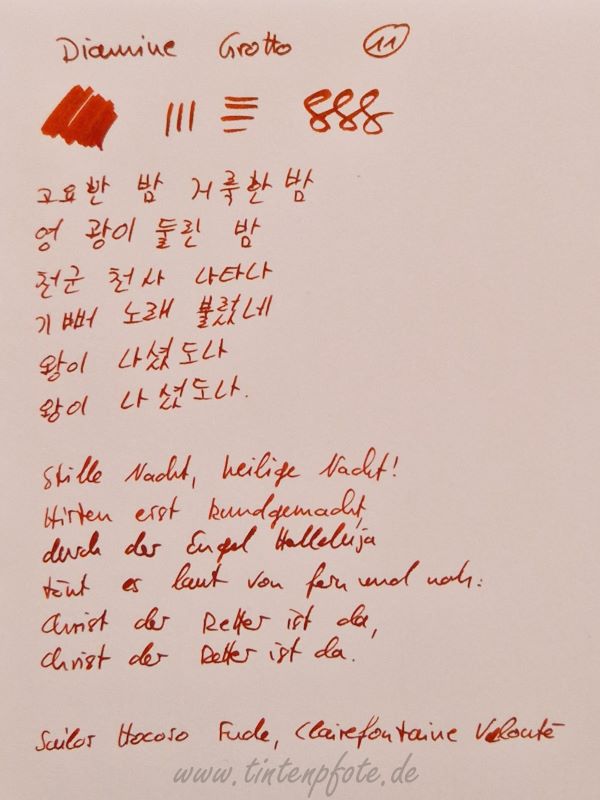 Diamine Grotto 11
고요한 밤 거룩한 밤
영 광이 둘린 밤
천군 천사 나타나
기뻐 노래 불렀네
왕이 나셨도다
왕이 나셨도다.
Stille Nacht, heilige Nacht!
Hirten erst kundgemacht,
durch der Engel Halleluja
tönt es laut von fern und nah:
Christ der Retter ist da,
Christ der Retter ist da.
Sailor Hocoso Fude, Clairefontaine Velouté
www.tintenpfote.de